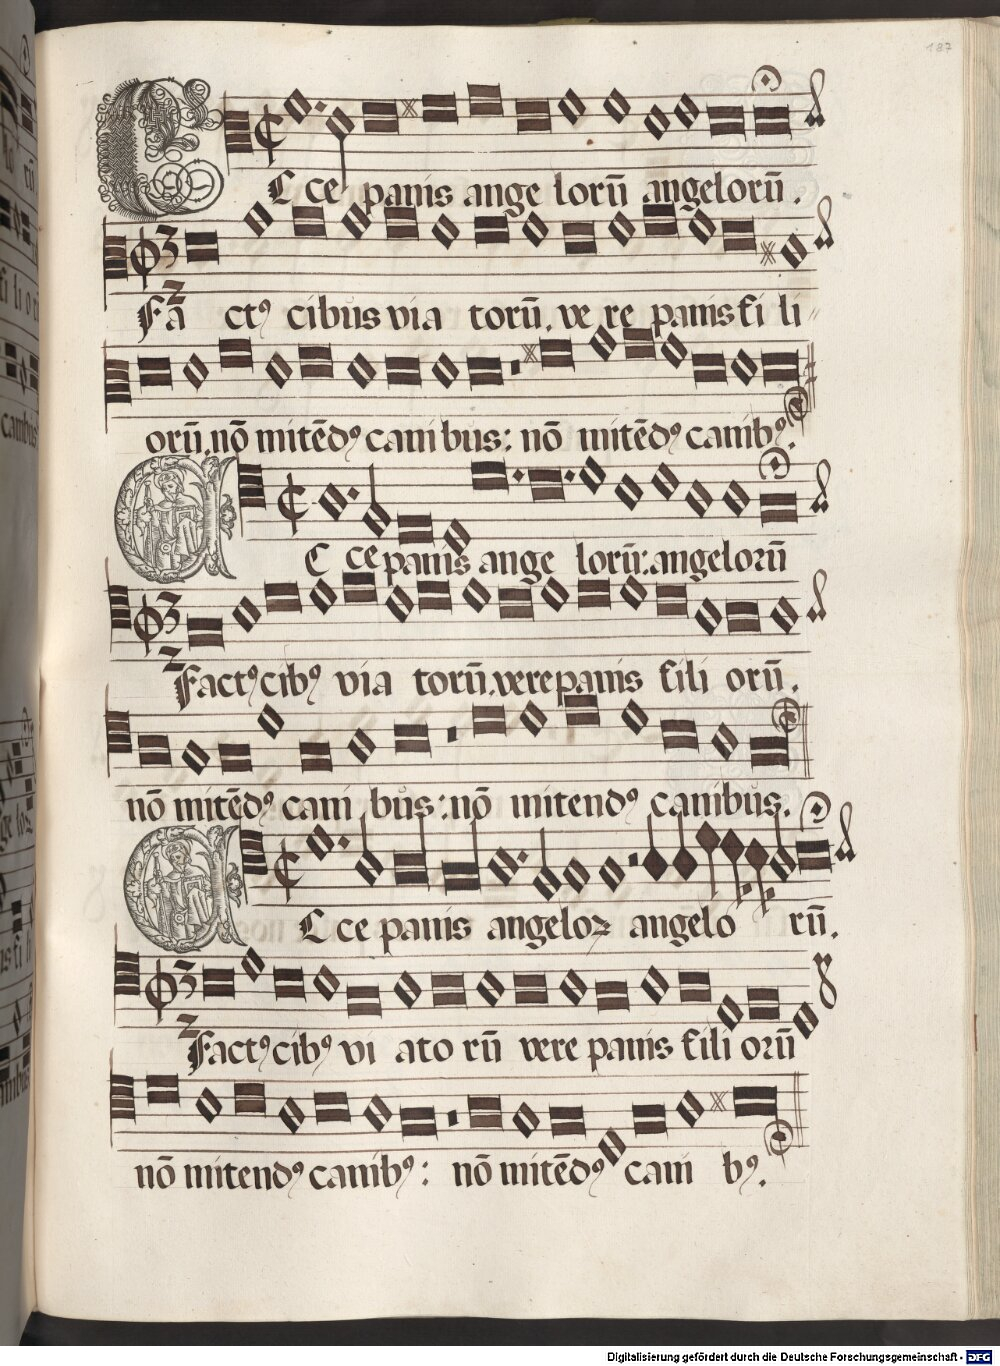 187
Ecce panis ange lorũ angelorũ.
Fa ctꝰ cibus via torũ. ve re panis fi li
orũ. nõ mitẽdꝰ cani bus: nõ mitẽdꝰ canibꝰ.
Ecce panis ange lorũ: angelorũ
Factꝰ cibꝰ via torũ. vere panis fili orũ.
nõ mitẽdꝰ cani bus: nõ mitendꝰ canibus.
Ecce panis angeloꝝ angelo rũ.
Factꝰ cibꝰ vi ato rũ vere panis fili orũ
nõ mitendꝰ canibꝰ: nõ mitẽdꝰ cani bꝰ.
Digitalisierung gefördert durch die Deutsche Forschungsgemeinschaft - DFG